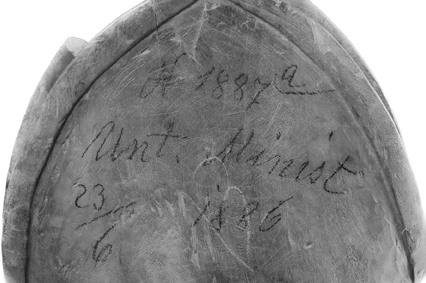 H 1887 a
Unt. Minist
23/6 1886